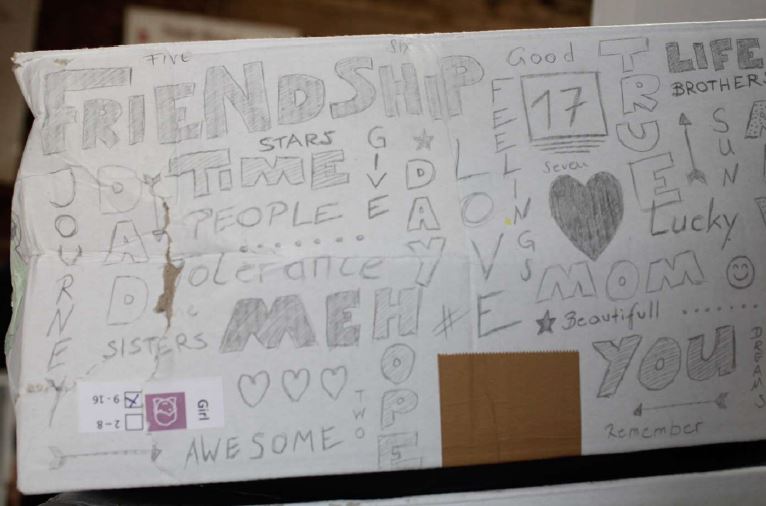 FIVE
SIX
Good
TRUE
LIFE
FRIENDSHIP
FEELINGS
17
BROTHERS
STARS
GIVE
SUN
TIME
DAY
LOVE
Seven
JOURNEY
DAD
PEOPLE
Lucky
Tolerance
MOM
ME
HOPE
#
Beautifull
SISTERS
YOU
DREAMS
Girl
9-16
2-8
TWO
AWESOME
Remember